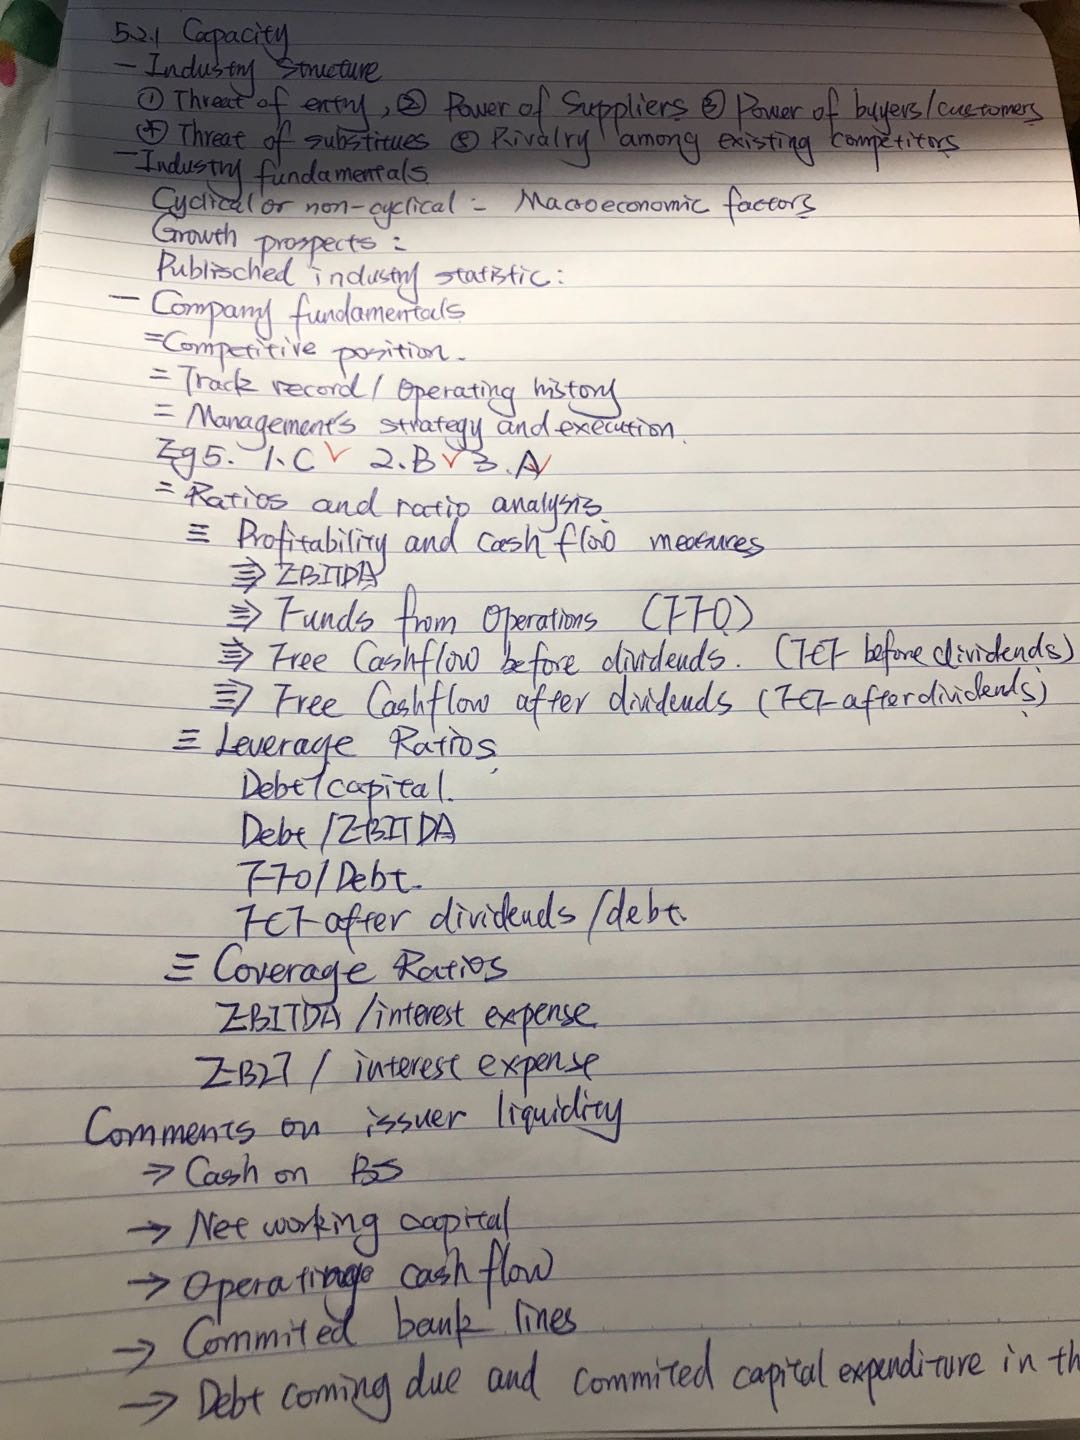 5.2.1 Capacity
— Industry Structure
① Threat of entry, ② Power of Suppliers ③ Power of buyers/customers
④ Threat of substitues ⑤ Rivalry among existing competitors
— Industry fundamentals
Cyclical or non-cyclical : Macroeconomic factors
Growth prospects :
Publisched industry statistic :
— Company fundamentals
= Competitive position.
= Track record / Operating history
= Management's strategy and execution.
Eg 5. 1. C ✓ 2. B ✓ 3. A ✓
= Ratios and ratio analysis
≡ Profitability and Cash flow measures
⇛ EBITDA
⇛ Funds from Operations (FFO)
⇛ Free Cashflow before dividends. (FCF before dividends)
⇛ Free Cashflow after dividends (FCF after dividends)
≡ Leverage Ratios
Debt/capital.
Debt /EBITDA
FFO/Debt.
FCF after dividends /debt.
≡ Coverage Ratios
EBITDA /interest expense
EBIT / interest expense
Comments on issuer liquidity
→ Cash on BS
→ Net working capital
→ Operating cash flow
→ Commited bank lines
→ Debt coming due and commited capital expenditure in th